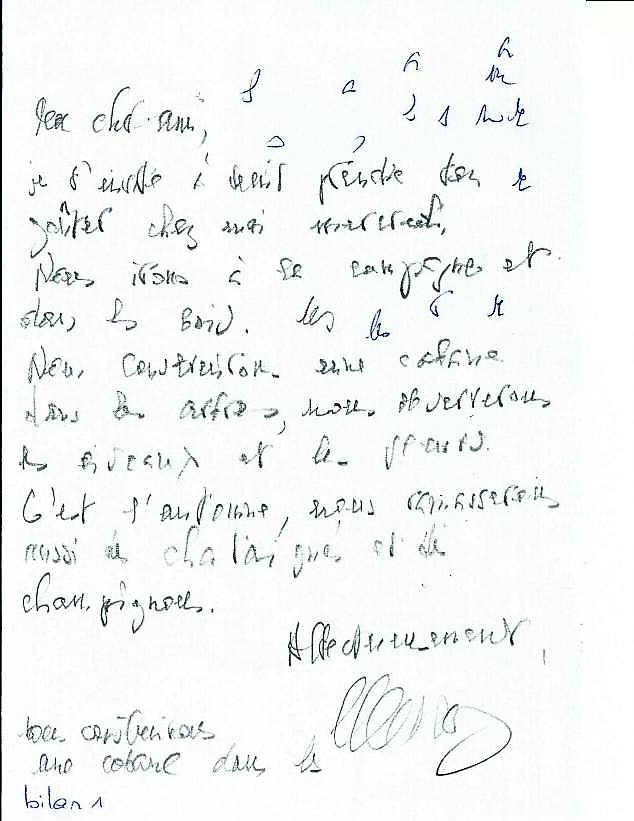 cher ami,
je t'invite à venir prendre ton
goûter chez moi mercredi,
Nous irons à la campagne et
dans les bois. les les
Nous construirons une cabane
dans les arbres, nous observerons
les oiseaux et les
C'est l'automne, nous ramasserons
aussi des chataignes et des
champignons.
Affectueusement,
nous construirons
une cabane dans les
bilan 1